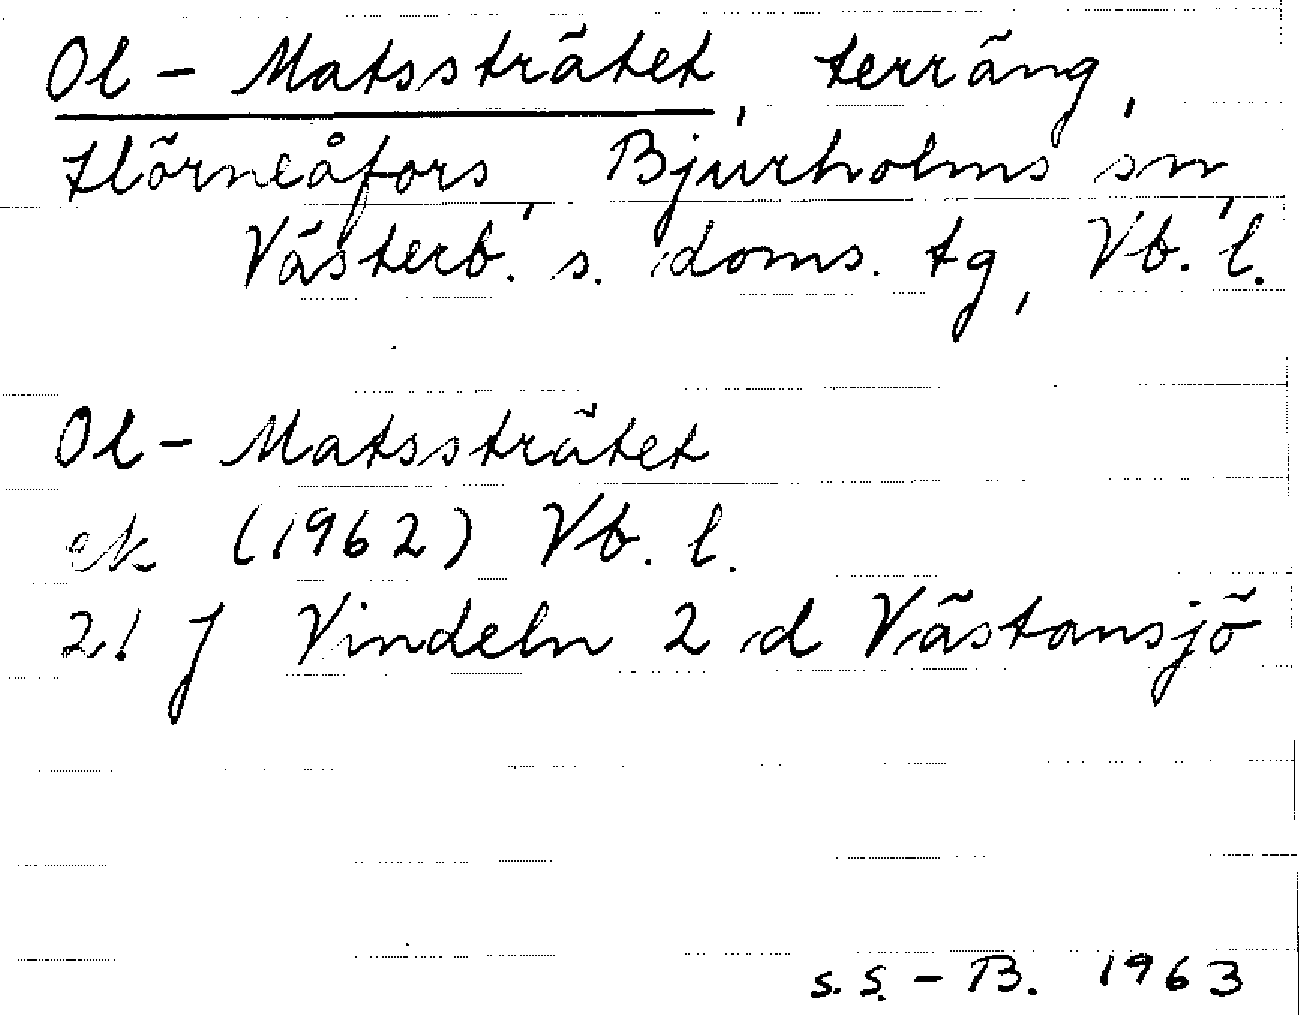 Ol-Matssträtet, terräng,
Hörneåfors, Bjurholms sn,
Västerb. s. doms. tg, Vb. l.
Ol-Matssträtet
ek (1962) Vb. l.
21 J Vindeln 2 d Västansjö
S. S. - B. 1963